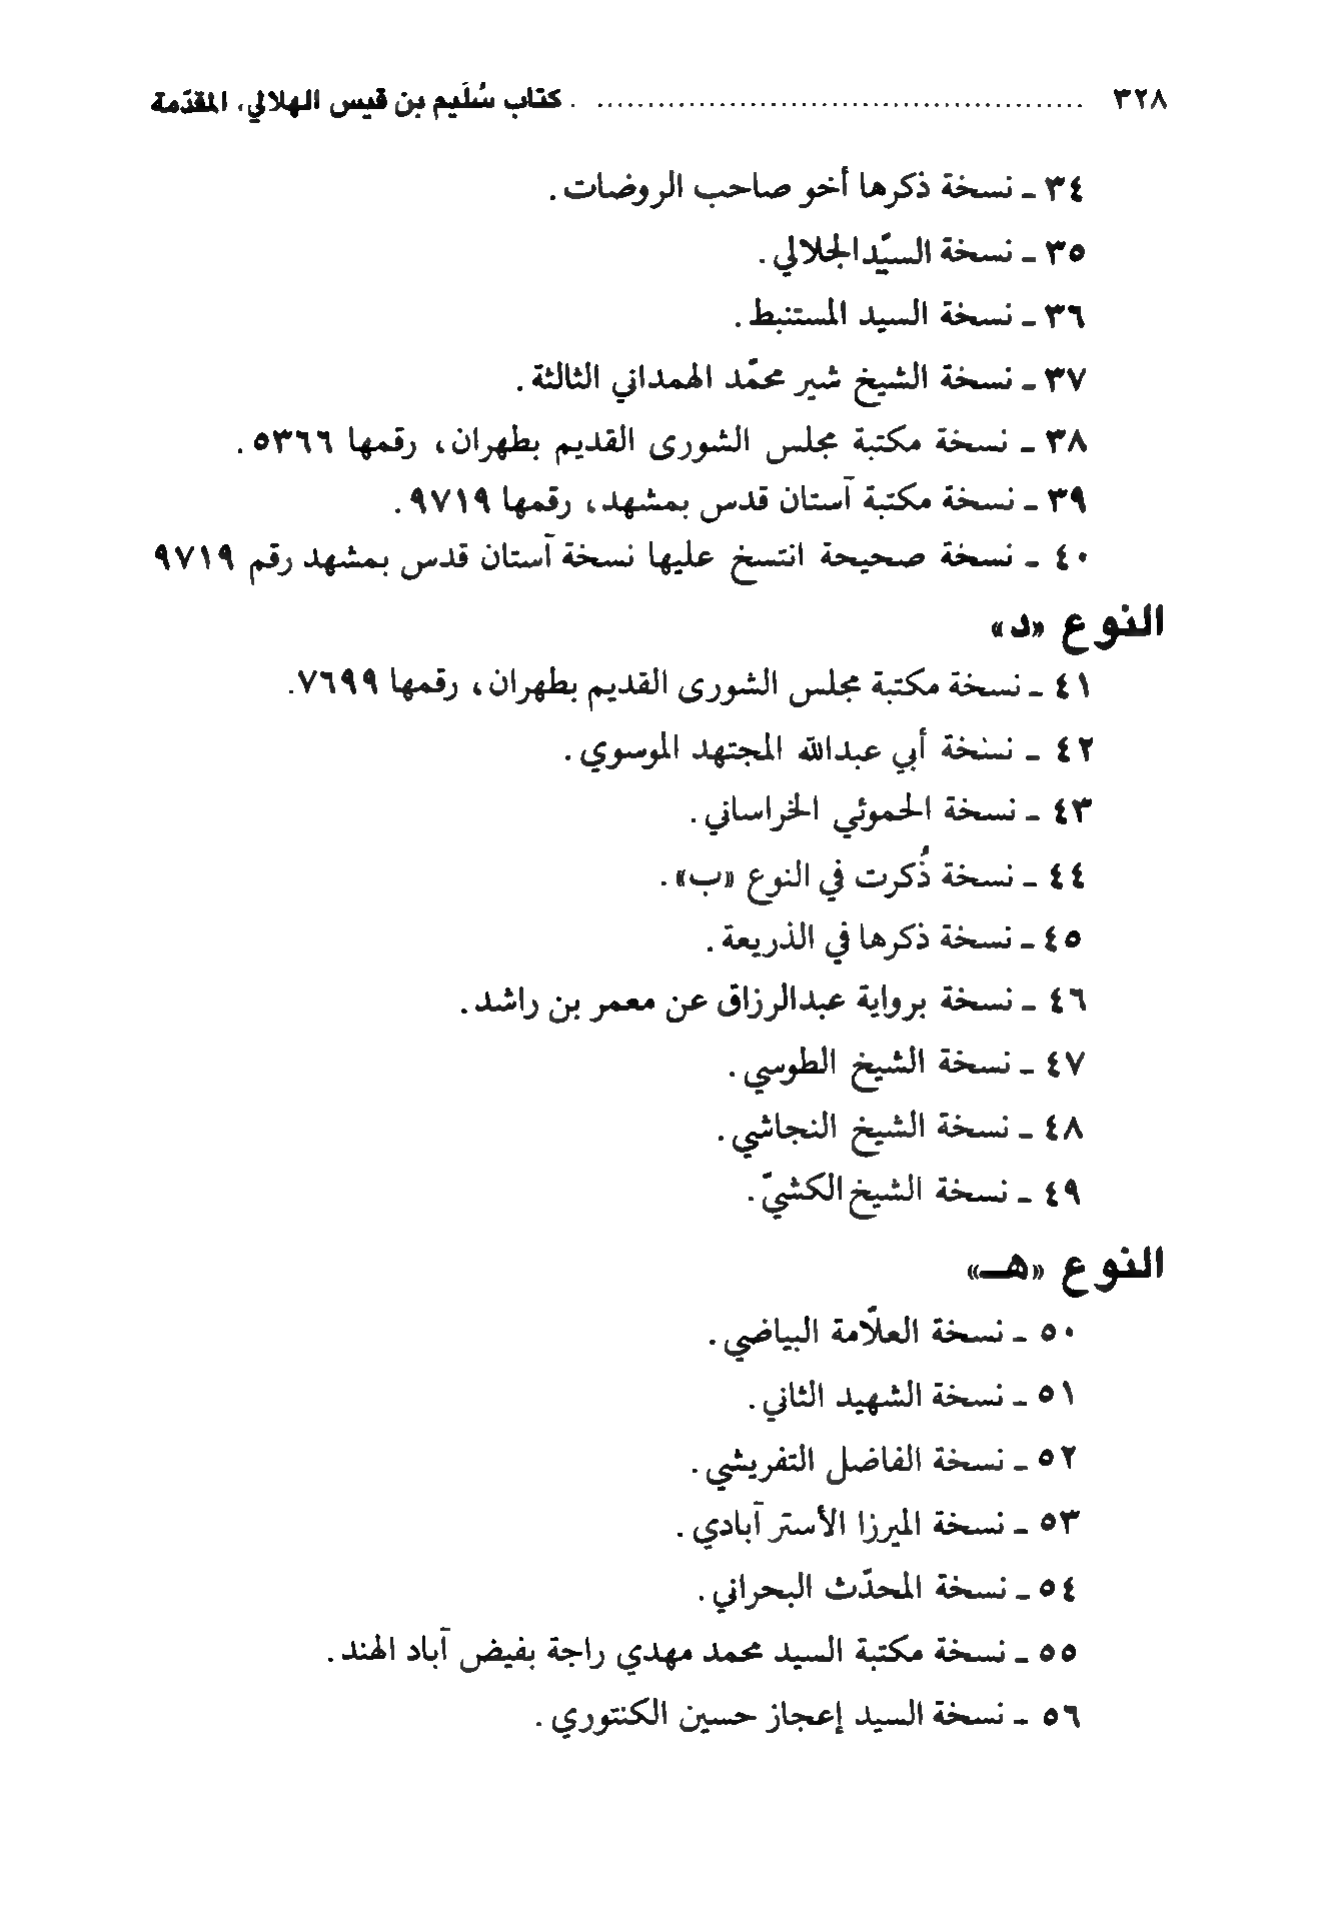 ٣٢٨ ............................................... كتاب سُلَيم بن قيس الهلالي، المقدّمة
٣٤ ـ نسخة ذكرها أخو صاحب الروضات.
٣٥ ـ نسخة السيّد الجلالي.
٣٦ ـ نسخة السيد المستنبط.
٣٧ ـ نسخة الشيخ شير محمّد الهمداني الثالثة.
٣٨ ـ نسخة مكتبة مجلس الشورى القديم بطهران، رقمها ٥٣٦٦.
٣٩ ـ نسخة مكتبة آستان قدس بمشهد، رقمها ٩٧١٩.
٤٠ ـ نسخة صحيحة انتسخ عليها نسخة آستان قدس بمشهد رقم ٩٧١٩
النوع «د»
٤١ ـ نسخة مكتبة مجلس الشورى القديم بطهران، رقمها ٧٦٩٩.
٤٢ ـ نسخة أبي عبدالله المجتهد الموسوي.
٤٣ ـ نسخة الحموئي الخراساني.
٤٤ ـ نسخة ذُكرت في النوع «ب».
٤٥ ـ نسخة ذكرها في الذريعة.
٤٦ ـ نسخة برواية عبدالرزاق عن معمر بن راشد.
٤٧ ـ نسخة الشيخ الطوسي.
٤٨ ـ نسخة الشيخ النجاشي.
٤٩ ـ نسخة الشيخ الكشيّ.
النوع «هـ»
٥٠ ـ نسخة العلّامة البياضي.
٥١ ـ نسخة الشهيد الثاني.
٥٢ ـ نسخة الفاضل التفريشي.
٥٣ ـ نسخة الميرزا الأستر آبادي.
٥٤ ـ نسخة المحدّث البحراني.
٥٥ ـ نسخة مكتبة السيد محمد مهدي راجة بفيض آباد الهند.
٥٦ ـ نسخة السيد إعجاز حسين الكنتوري.